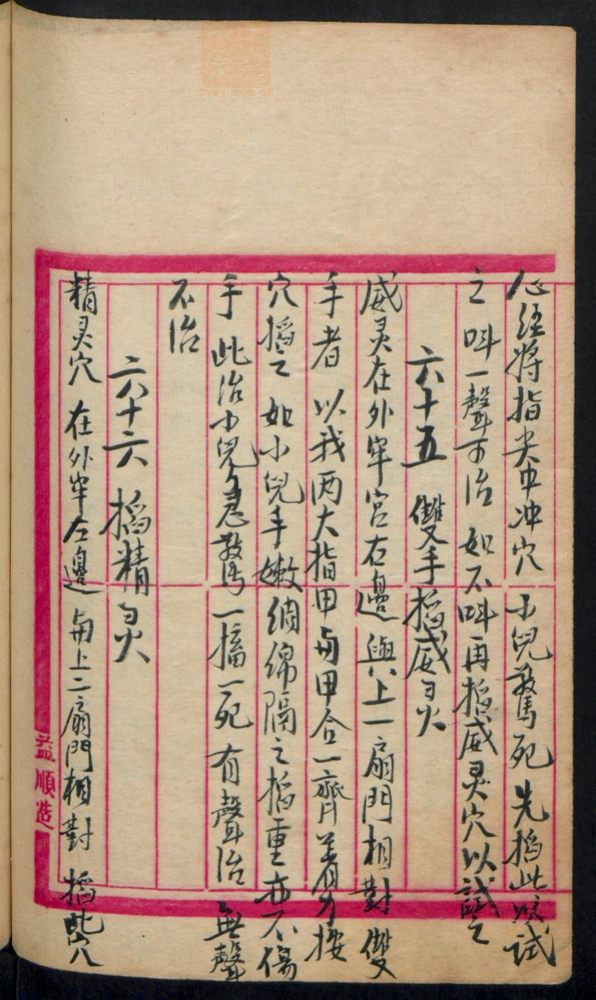 心经将指尖中冲穴 小兒驚死 先掐此以試
之 叫一聲可治 如不叫再掐威灵穴以試之
六十五 雙手掐威灵
威灵在外牢宮右邊 與上一扇門相對 雙
手者 以我两大指甲甲合一齊着力按
穴掐之 如小兒手嫩绸绵隔之掐重亦不傷
手 此治小兒急驚 一掐一死 有聲治 無聲
不治
六十六 掐精灵
精灵穴 在外牢左邊 与上二扇門相對 掐此穴
益順造